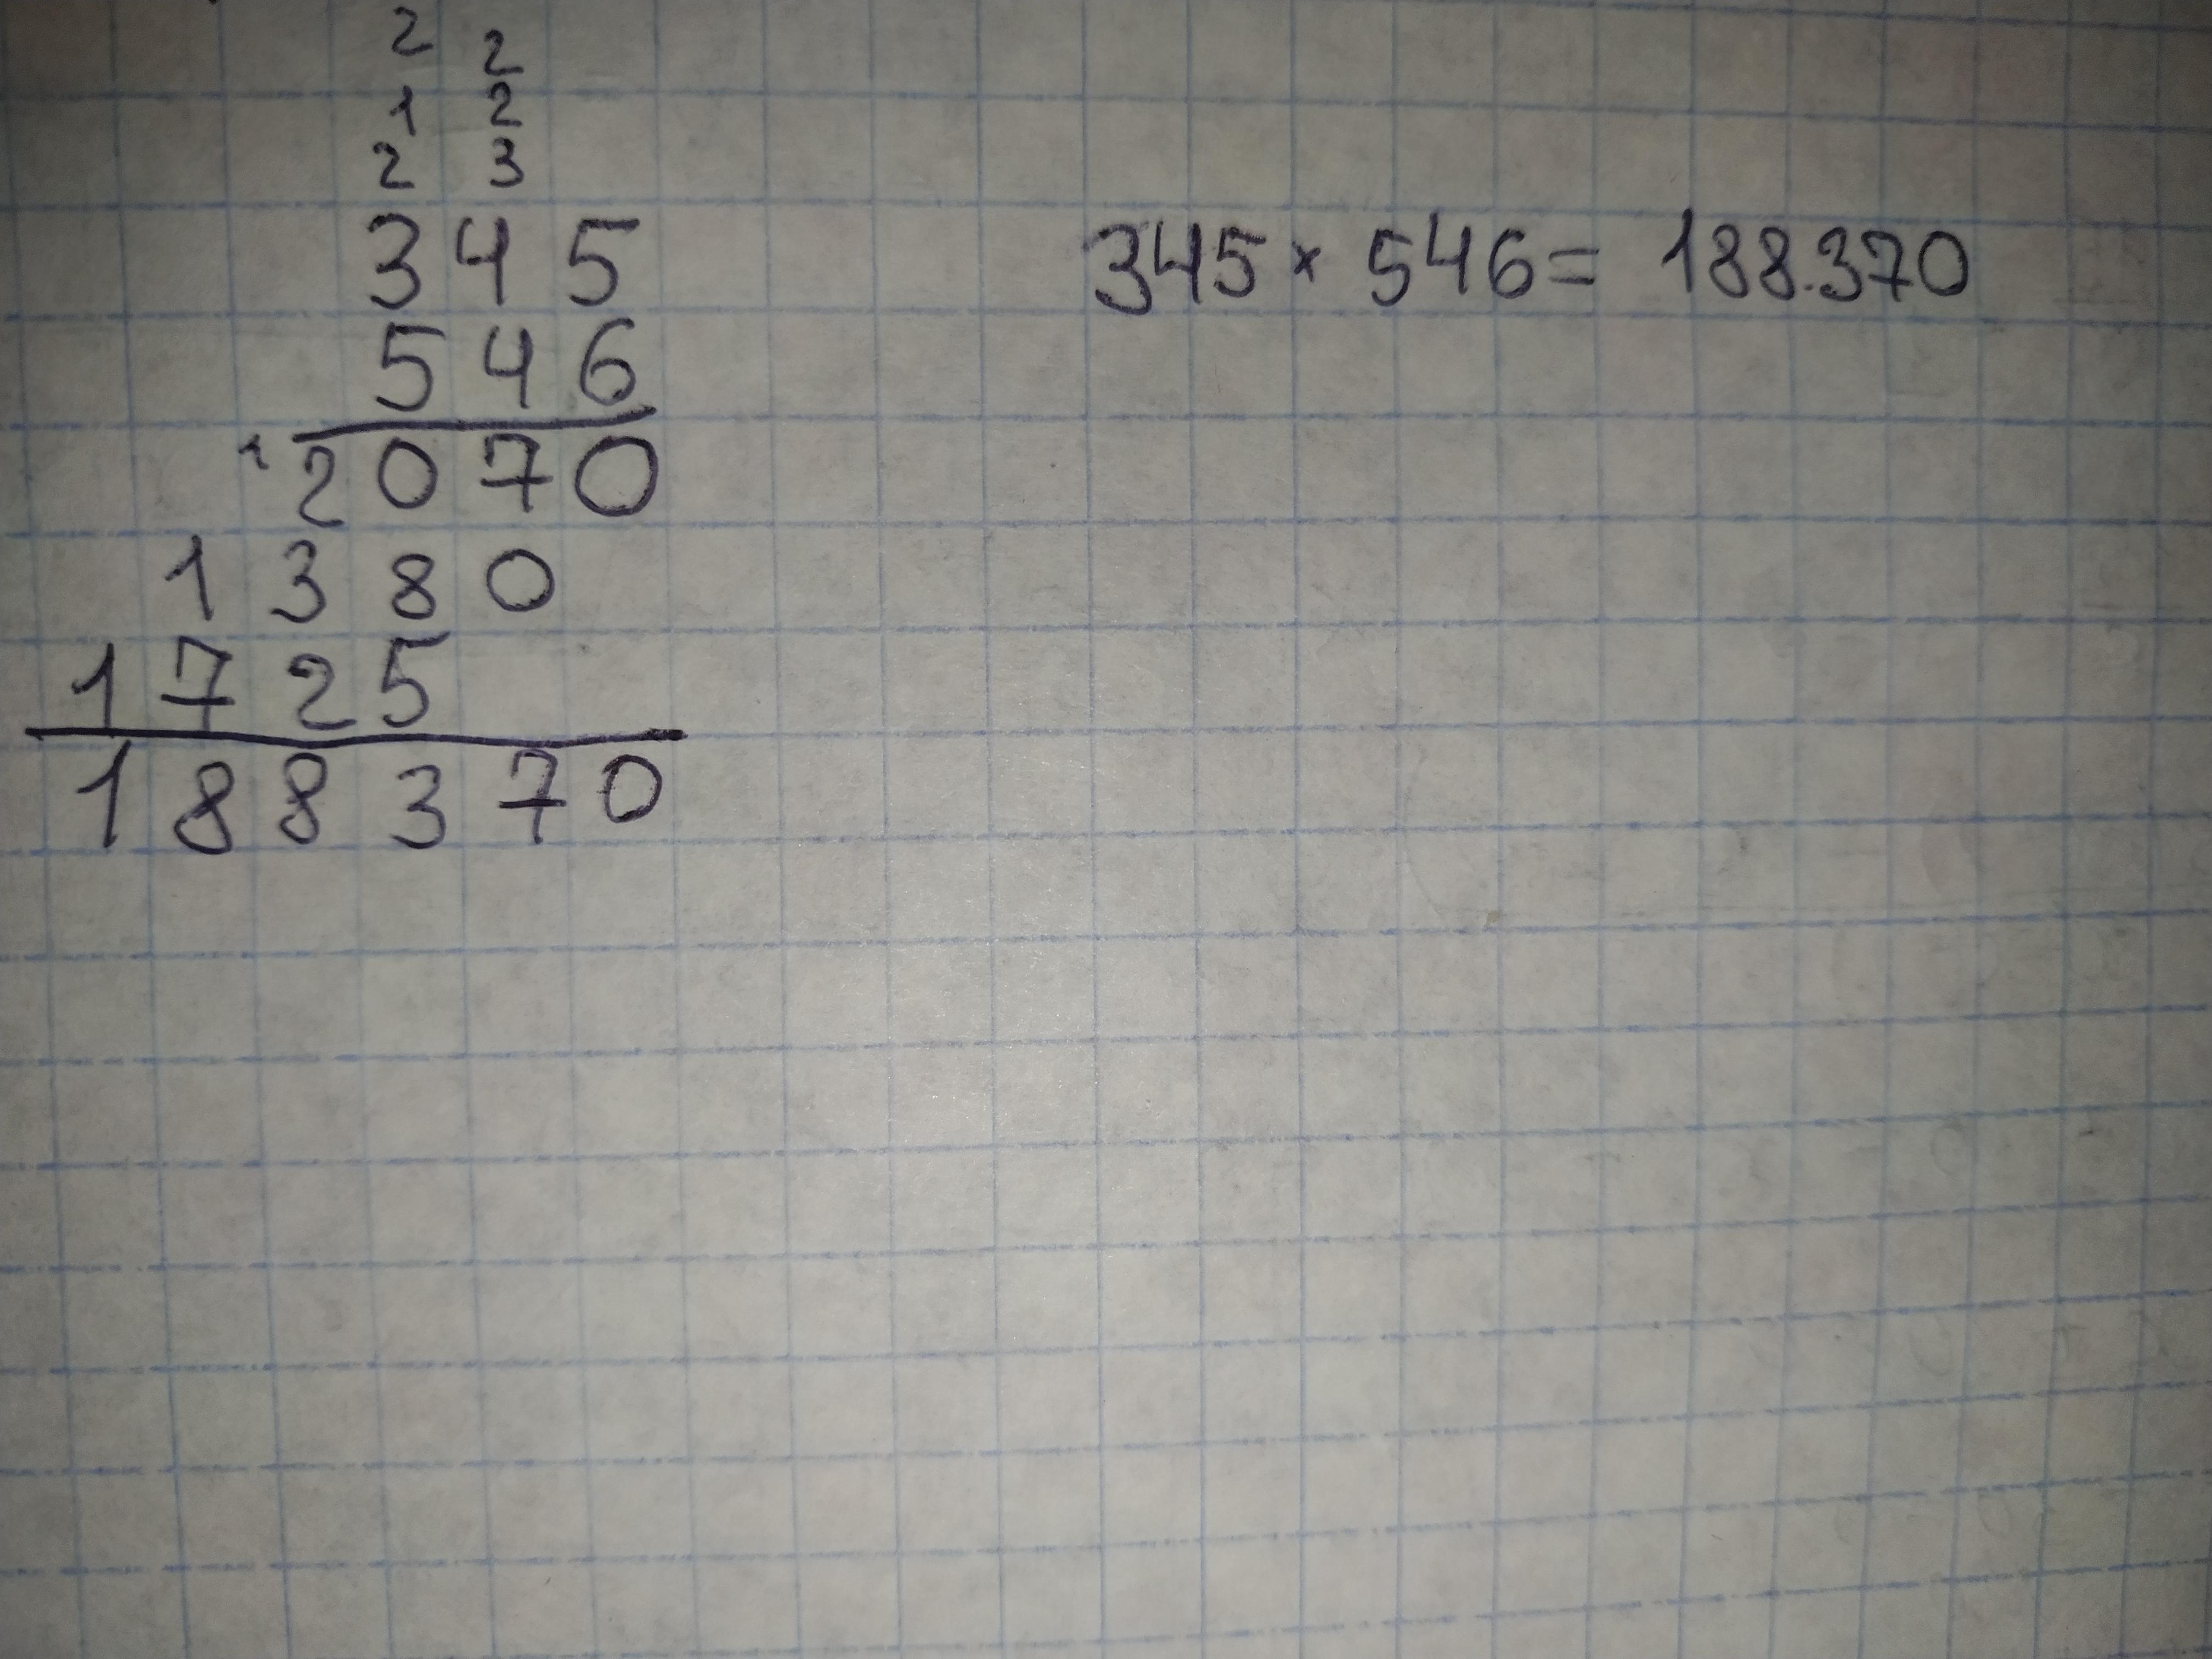 2 2
1 2
2 3
345
546
1 2070
1380
1725
188370
345 × 546 = 188.370